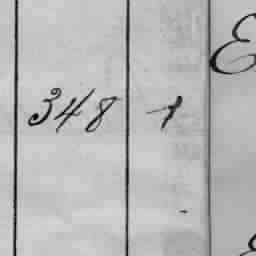 348 1